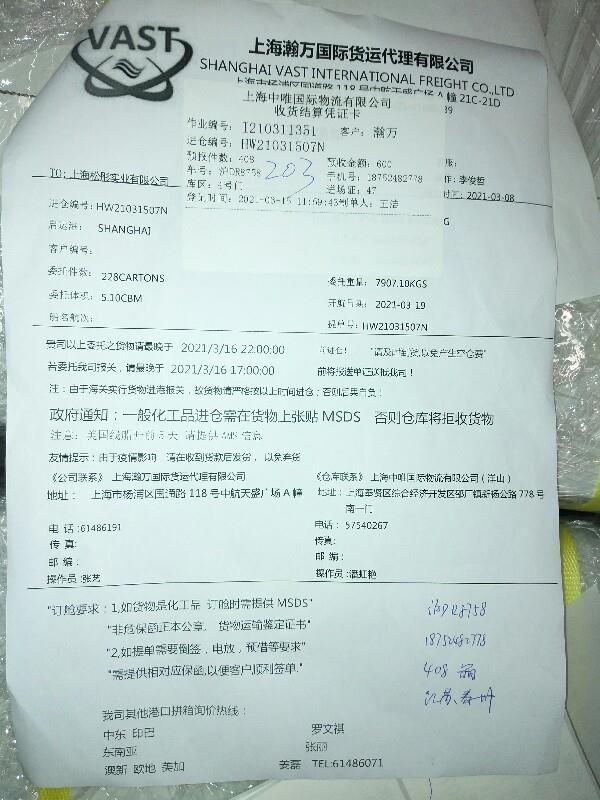 VAST
上海瀚万国际货运代理有限公司
SHANGHAI VAST INTERNATIONAL FREIGHT CO.,LTD
上海市杨浦区国通路 118 号中航天盛广场 A 幢 21C-21D
上海中唯国际物流有限公司
收货结算凭证卡
作业编号: I210311351 客户: 瀚万
进仓编号: HW21031507N
预报件数: 408 预收金额: 600
车号: 沪DR8758 手机号: 18752482778
库区: 4号门 进场证: 47
登记时间: 2021-03-15 11:59:43 制单人: 王洁
203
TO: 上海松彤实业有限公司
作: 李俊哲
时间: 2021-03-08
进仓编号: HW21031507N
启运港: SHANGHAI
客户编号:
委托件数: 228CARTONS 委托重量: 7907.10KGS
委托体积: 5.10CBM 开航日期: 2021-03-19
船名航次: 提单号: HW21031507N
贵司以上委托之货物请最晚于 2021/3/16 22:00:00
若委托我司报关，请最晚于 2021/3/16 17:00:00 前将报送单证送抵我司！
注：由于海关实行货物进港报关，故货物请严格按以上时间进仓；否则后果自负！
政府通知：一般化工品进仓需在货物上张贴 MSDS 否则仓库将拒收货物
注意：美国线船开前 5 天 请提供 AMS 信息
友情提示：由于疫情影响 请在收到货款后发货，以免弃货
《公司联系》上海瀚万国际货运代理有限公司 《仓库联系》上海中唯国际物流有限公司（洋山）
地址： 上海市杨浦区国通路 118 号中航天盛广场 A 幢 地址：上海奉贤区综合经济开发区邬厂镇新杨公路 778 号
南一门
电话:61486191 电话: 57540267
传真: 传真:
邮编: 邮编:
操作员:张艺 操作员:潘虹艳
"订舱要求：1,如货物是化工品 订舱时需提供 MSDS"
"非危保函正本公章，货物运输鉴定证书"
"2,如提单需要倒签，电放，预借等要求"
"需提供相对应保函,以便客户顺利签单."
18752482778
408
我司其他港口拼箱询价热线：
中东 印巴 罗文祺
东南亚 张丽
澳新 欧地 美加 姜磊 TEL:61486071